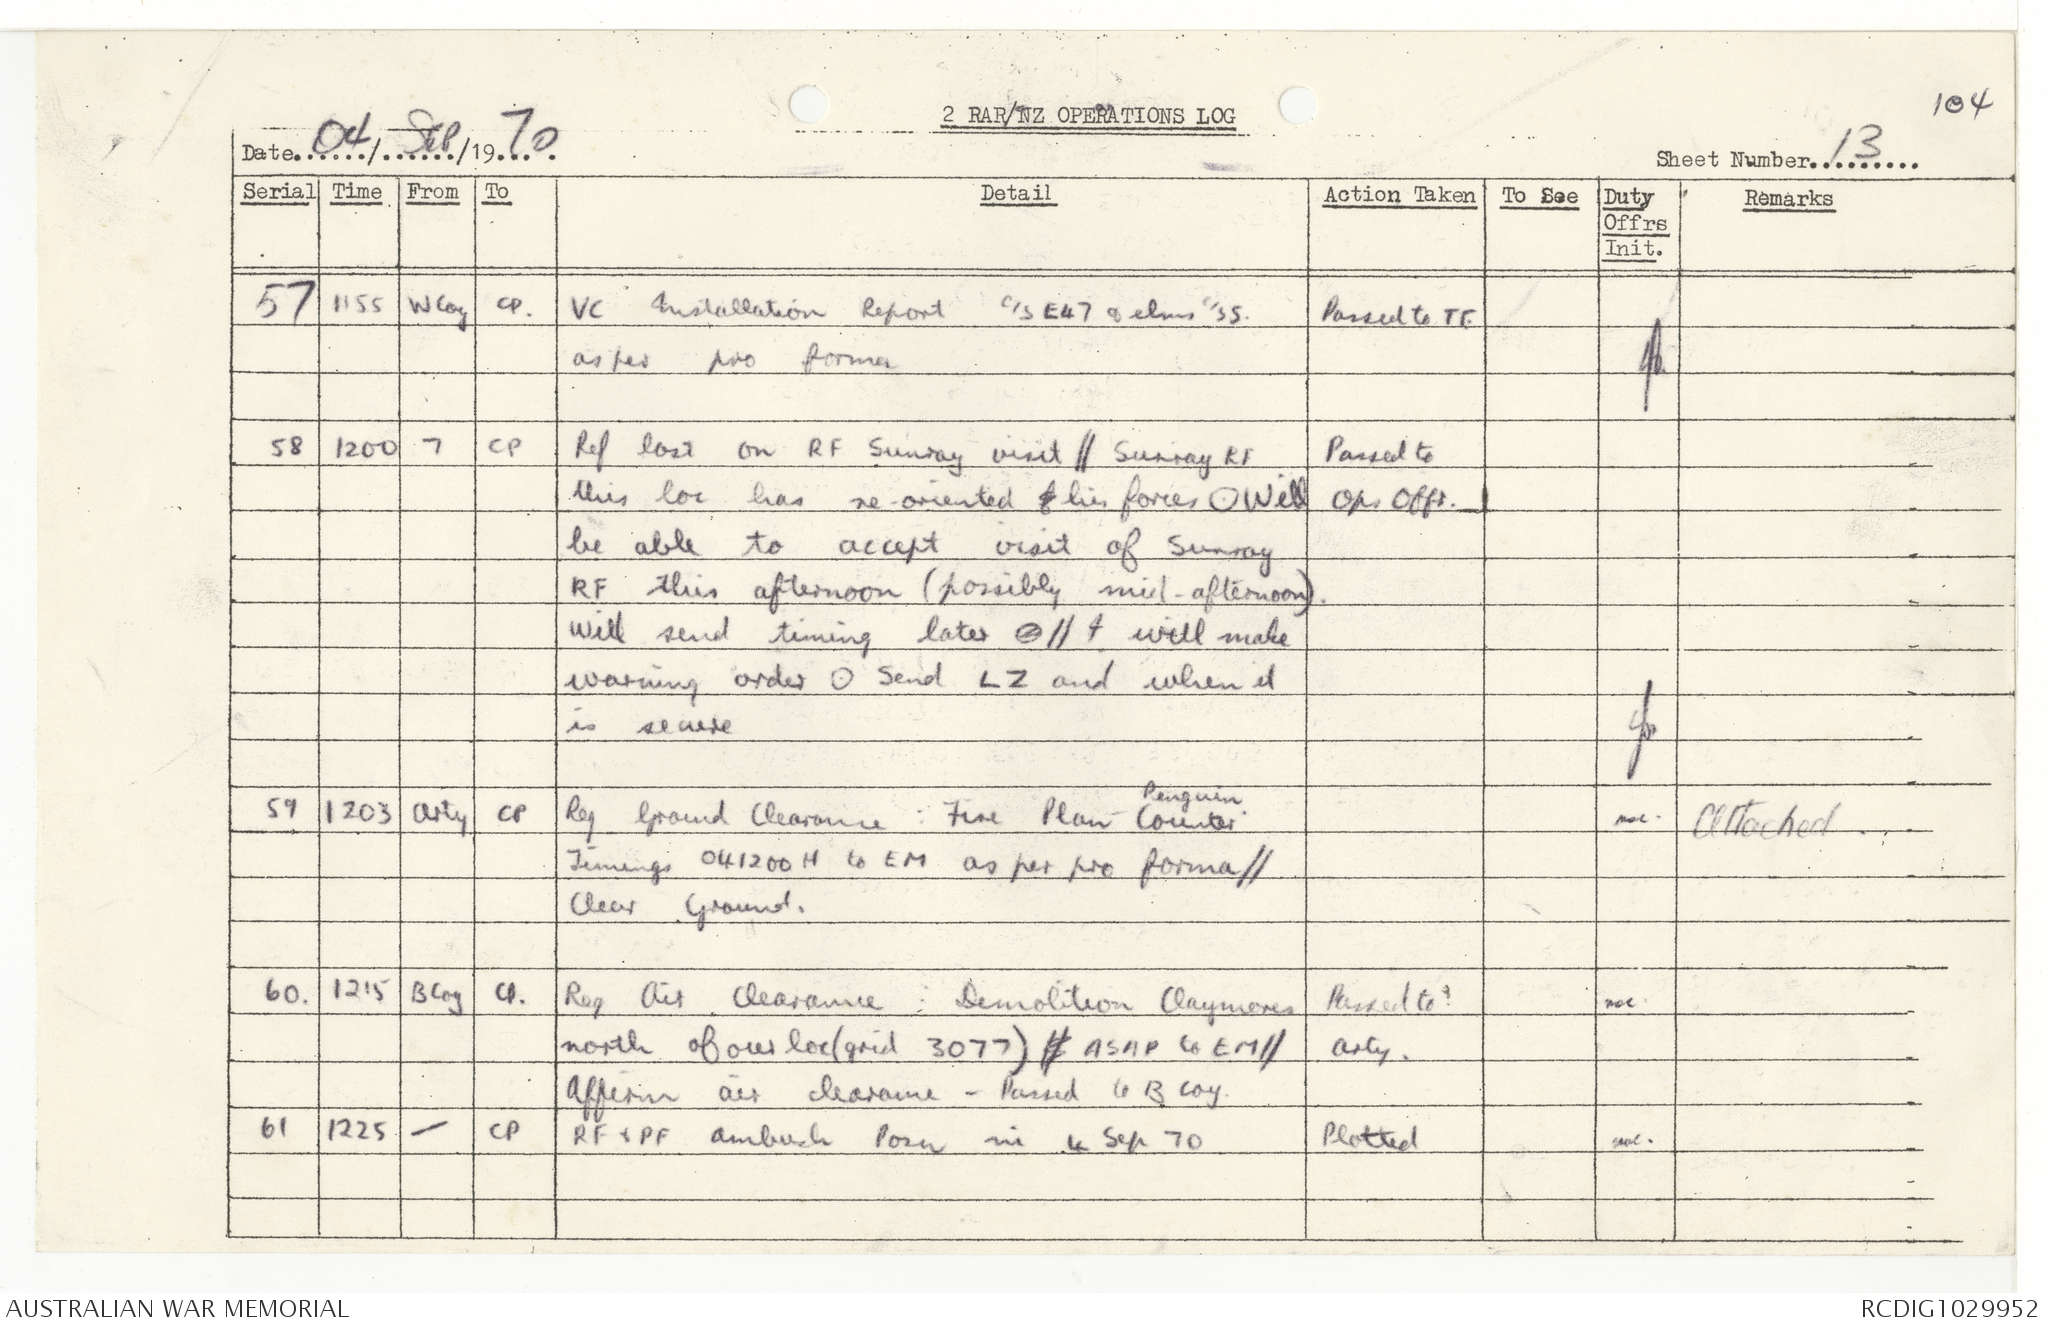 104
2 RAR/NZ OPERATIONS LOG
Date 04/Sep/1970
Sheet Number 13
Serial Time From To Detail Action Taken To See Duty Offrs Init. Remarks
57 1155 WCoy CP. VC Installation Report C/S E47 & elms C/S 5. Passed to TF
as per pro forma
58 1200 7 CP Ref last on RF Sunray visit // Sunray RF Passed to
this loc has re-oriented his forces ⊙ Will Ops Offr.
be able to accept visit of Sunray
RF this afternoon (possibly mid-afternoon).
Will send timing later // I will make
warning order ⊙ Send LZ and when it
is secure
59 1203 Arty CP Req Ground Clearance : Fire Plan Penguin Counter Attached
Timings 041200H to EM as per pro forma //
Clear Ground.
60. 1215 BCoy CP. Req Air Clearance : Demolition Claymores Passed to
north of our loc (grid 3077) // ASAP to EM // arty.
Affirm air clearance - Passed to B Coy.
61 1225 — CP RF & PF ambush Posn in 4 Sep 70 Plotted
AUSTRALIAN WAR MEMORIAL
RCDIG1029952